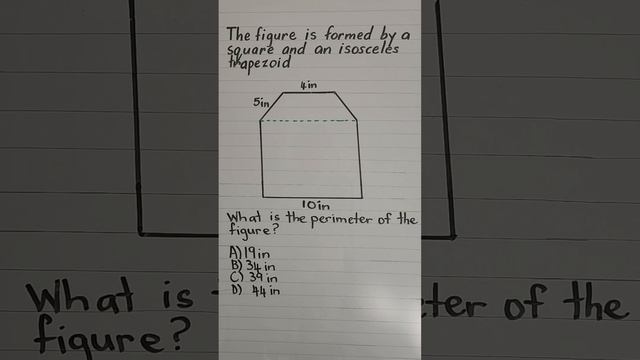 The figure is formed by a
square and an isosceles
trapezoid
4in
5in
10in
What is the perimeter of the
figure?
A) 19in
B) 34 in
C) 39 in
D) 44 in
What is
ter of the
figure?